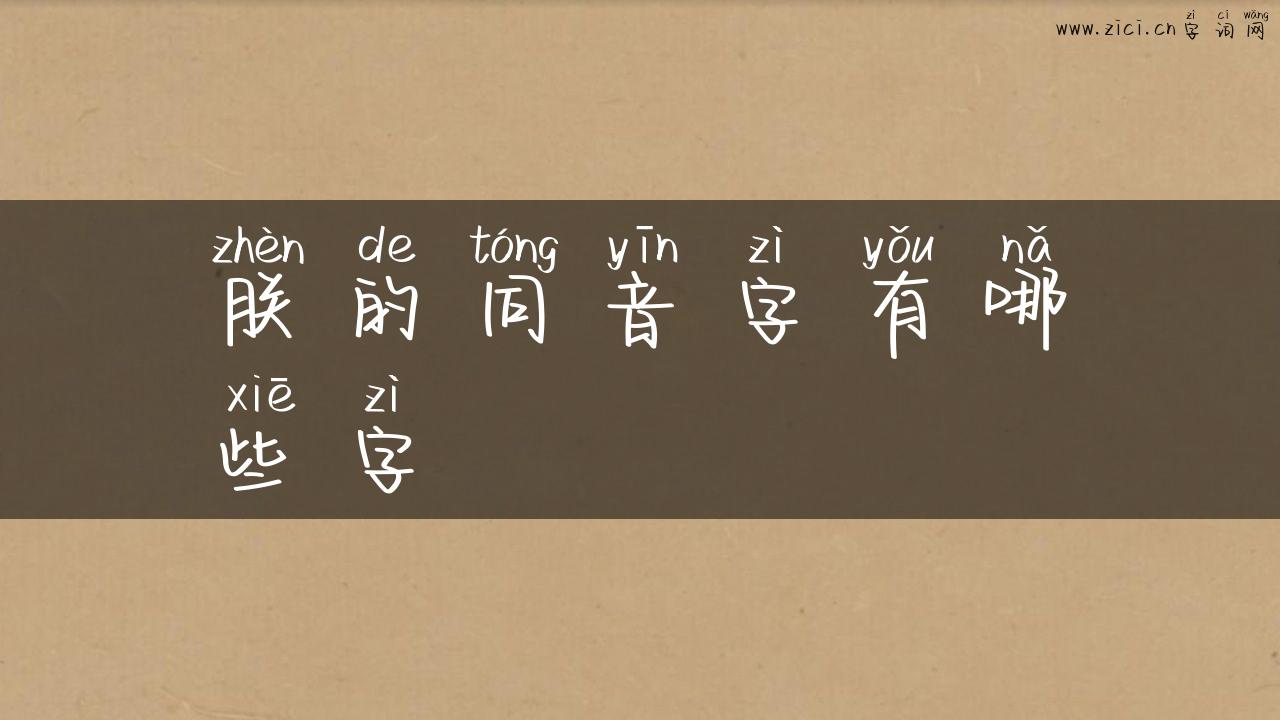 zì cí wǎng
www.zici.cn字词网
zhèn de tóng yīn zì yǒu nǎ
朕的同音字有哪
xiē zì
些字